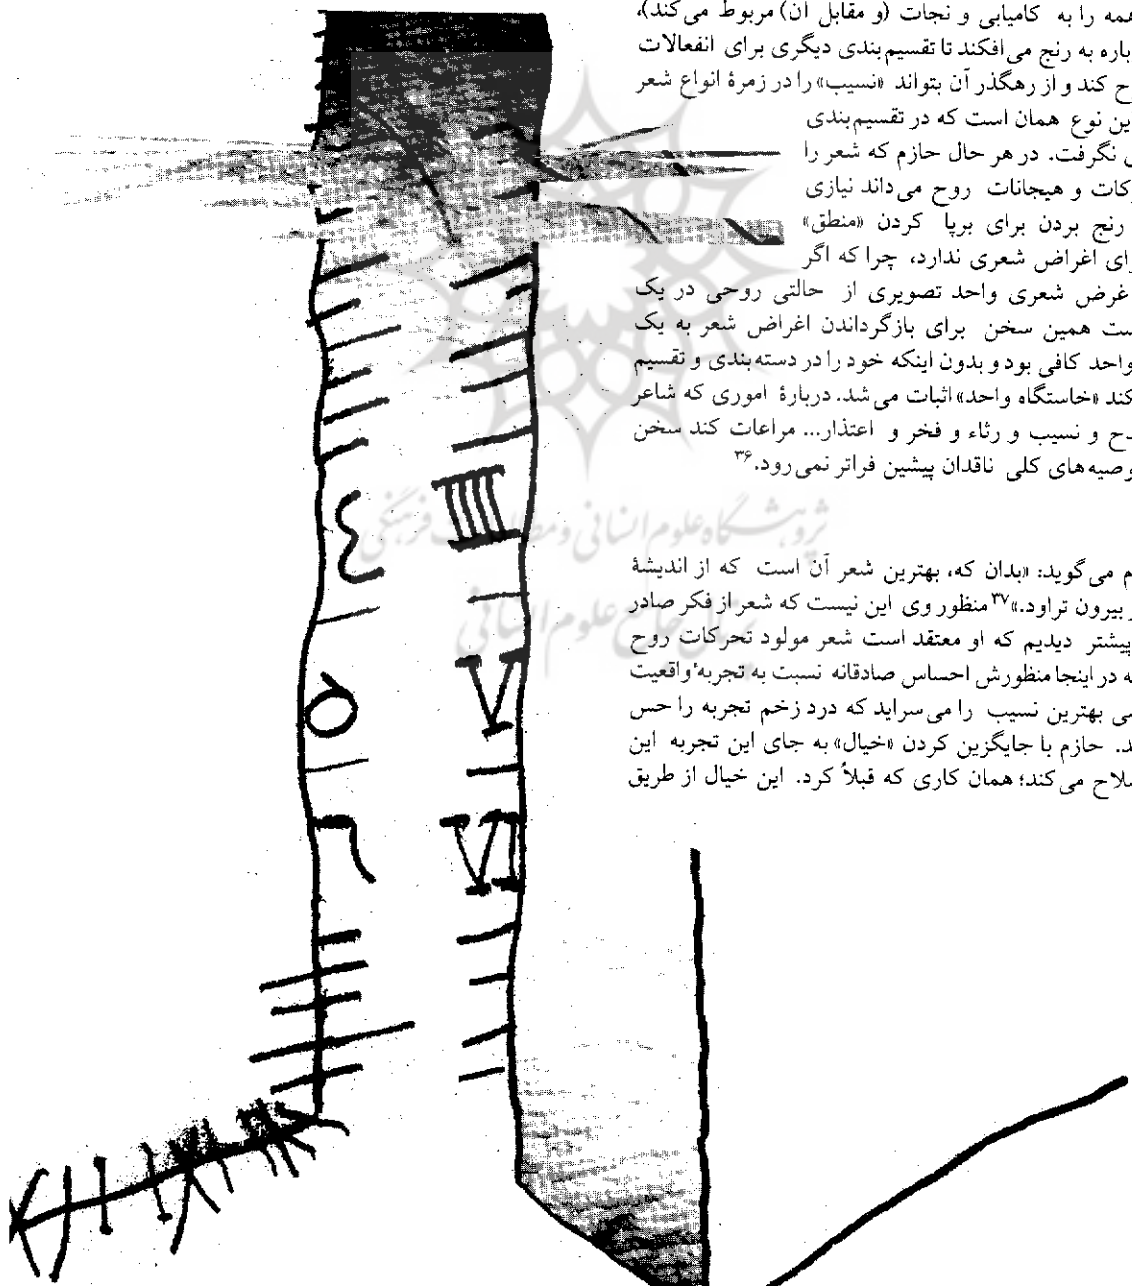 همه را به کامیابی و نجات (و مقابل آن) مربوط می‌کند)،
باره به رنج می‌افکند تا تقسیم‌بندی دیگری برای انفعالات
ح کند و از رهگذر آن بتواند «نسیب» را در زمرهٔ انواع شعر
این نوع همان است که در تقسیم‌بندی
ی نگرفت. در هر حال حازم که شعر را
رکات و هیجانات روح می‌داند نیازی
رنج بردن برای برپا کردن «منطق»
رای اغراض شعری ندارد، چرا که اگر
غرض شعری واحد تصویری از حالتی روحی در یک
ست همین سخن برای بازگرداندن اغراض شعر به یک
واحد کافی بود و بدون اینکه خود را در دسته‌بندی و تقسیم
کند «خاستگاه واحد» اثبات می‌شد. دربارهٔ اموری که شاعر
دح و نسیب و رثاء و فخر و اعتذار... مراعات کند سخن
وصیه‌های کلی ناقدان پیشین فراتر نمی‌رود.۳۶
م می‌گوید: «بدان که، بهترین شعر آن است که از اندیشهٔ
ر بیرون تراود.»۳۷ منظور وی این نیست که شعر از فکر صادر
پیشتر دیدیم که او معتقد است شعر مولود تحرکات روح
ه در اینجا منظورش احساس صادقانه نسبت به تجربهٔ واقعیت
سی بهترین نسیب را می‌سراید که درد زخم تجربه را حس
ند. حازم با جایگزین کردن «خیال» به جای این تجربه این
سلاح می‌کند؛ همان کاری که قبلاً کرد. این خیال از طریق
پژوهشگاه علوم انسانی و مطالعات فرهنگی
پرتال جامع علوم انسانی
٤ IIII
۵ V
٦ VI